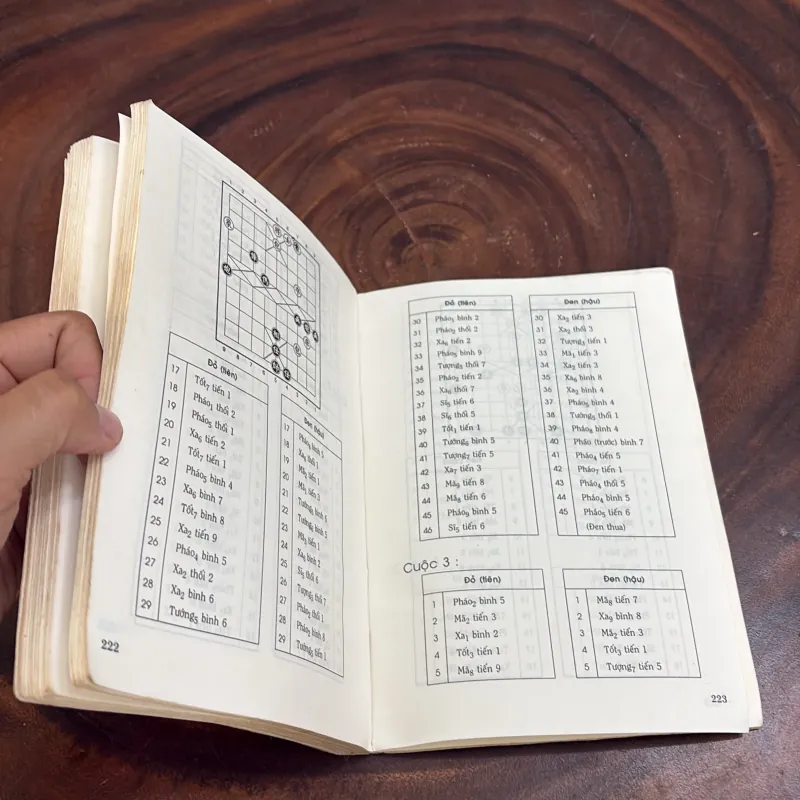 Đỏ (tiên)
17 Tốt₇ tiến 1
18 Pháo₁ thối 2
19 Pháo₅ thối 1
20 Xa₆ tiến 2
21 Tốt₇ tiến 1
22 Pháo₅ bình 4
23 Xa₆ bình 7
24 Tốt₇ bình 8
25 Xa₂ tiến 9
26 Pháo₄ bình 5
27 Xa₂ thối 2
28 Xa₂ bình 6
29 Tướng₅ bình 6
Đen (hậu)
17 Pháo₈ bình 5
18 Xa₈ thối 1
19 Mã₁ tiến 3
20
21 Tướng₅ bình 5
22
23 Mã₁ tiến 1
24
25 Sĩ₅ thối 6
26 Tượng₅ thối 7
27 Pháo₂ thối 1
28 Pháo₂ bình 8
29 Tướng₅ tiến 1
222
Đỏ (tiên)
30 Pháo₁ bình 2
31 Pháo₂ thối 2
32 Xa₆ tiến 2
33 Pháo₅ bình 9
34 Tượng₅ thối 7
35 Pháo₂ tiến 2
36 Xa₆ thối 7
37 Sĩ₅ tiến 6
38 Sĩ₆ thối 5
39 Tốt₁ tiến 1
40 Tướng₆ bình 5
41 Tượng₇ tiến 5
42 Xa₇ tiến 3
43 Mã₉ tiến 8
44 Mã₈ tiến 6
45 Pháo₉ bình 5
46 Sĩ₅ tiến 6
Đen (hậu)
30 Xa₂ tiến 3
31 Xa₂ thối 3
32 Tượng₃ tiến 1
33 Mã₁ tiến 3
34 Xa₂ tiến 3
35 Xa₆ bình 8
36 Xa₂ bình 4
37 Pháo₅ bình 4
38 Tướng₅ thối 1
39 Pháo₈ bình 4
40 Pháo (trước) bình 7
41 Pháo₄ tiến 5
42 Pháo₇ tiến 1
43 Pháo₄ thối 5
44 Pháo₄ bình 5
45 Pháo₅ tiến 6
(Đen thua)
Cuộc 3 :
Đỏ (tiên)
1 Pháo₂ bình 5
2 Mã₂ tiến 3
3 Xa₁ bình 2
4 Tốt₃ tiến 1
5 Mã₈ tiến 9
Đen (hậu)
1 Mã₈ tiến 7
2 Xa₉ bình 8
3 Mã₂ tiến 3
4 Tốt₃ tiến 1
5 Tượng₇ tiến 5
223